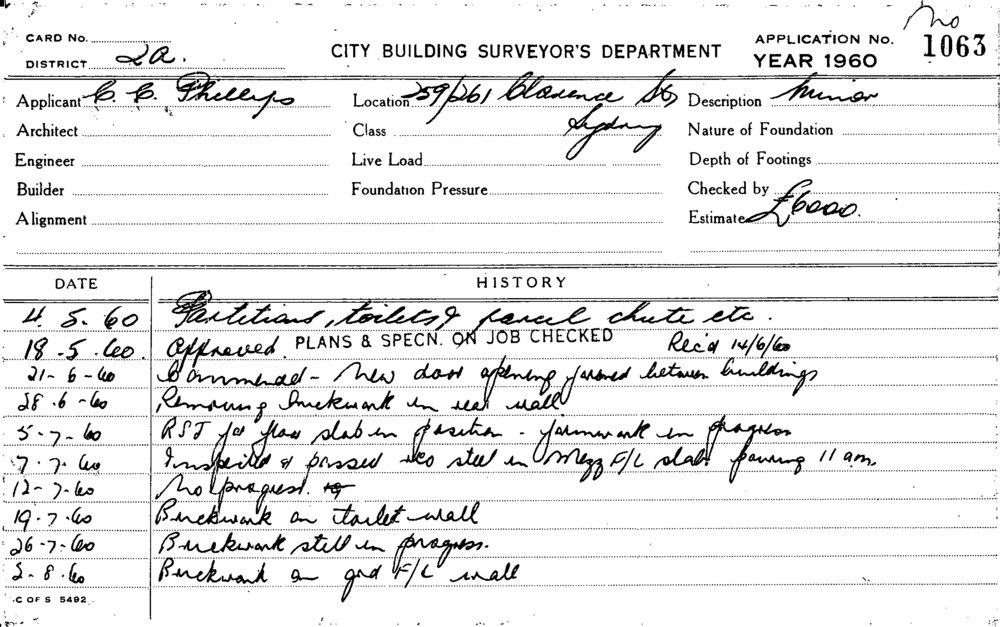 No
CARD No.
DISTRICT 2A.
CITY BUILDING SURVEYOR'S DEPARTMENT
APPLICATION No. 1063
YEAR 1960
Applicant C. C. Phillips
Location 259/261 Clarence St,
Sydney
Description Minor
Architect
Class
Nature of Foundation
Engineer
Live Load
Depth of Footings
Builder
Foundation Pressure
Checked by
Alignment
Estimate £6000.
DATE HISTORY
4. 5. 60 Partitions, toilets & parcel chute etc.
18-5.60. Approved. PLANS & SPECN. ON JOB CHECKED Rec'd 14/6/60
21-6-60 Commenced - New door opening formed between buildings
28.6-60 Removing brickwork in rear wall
5-7-60 RSJ for floor slab in position - formwork in progress
7.7.60 Inspected & passed steel in Mezz F/L slab pouring 11 am.
12-7.60 No progress.
19.7.60 Brickwork on toilet wall
26-7-60 Brickwork still in progress.
2-8.60 Brickwork on grd F/L wall
C OF S 5492